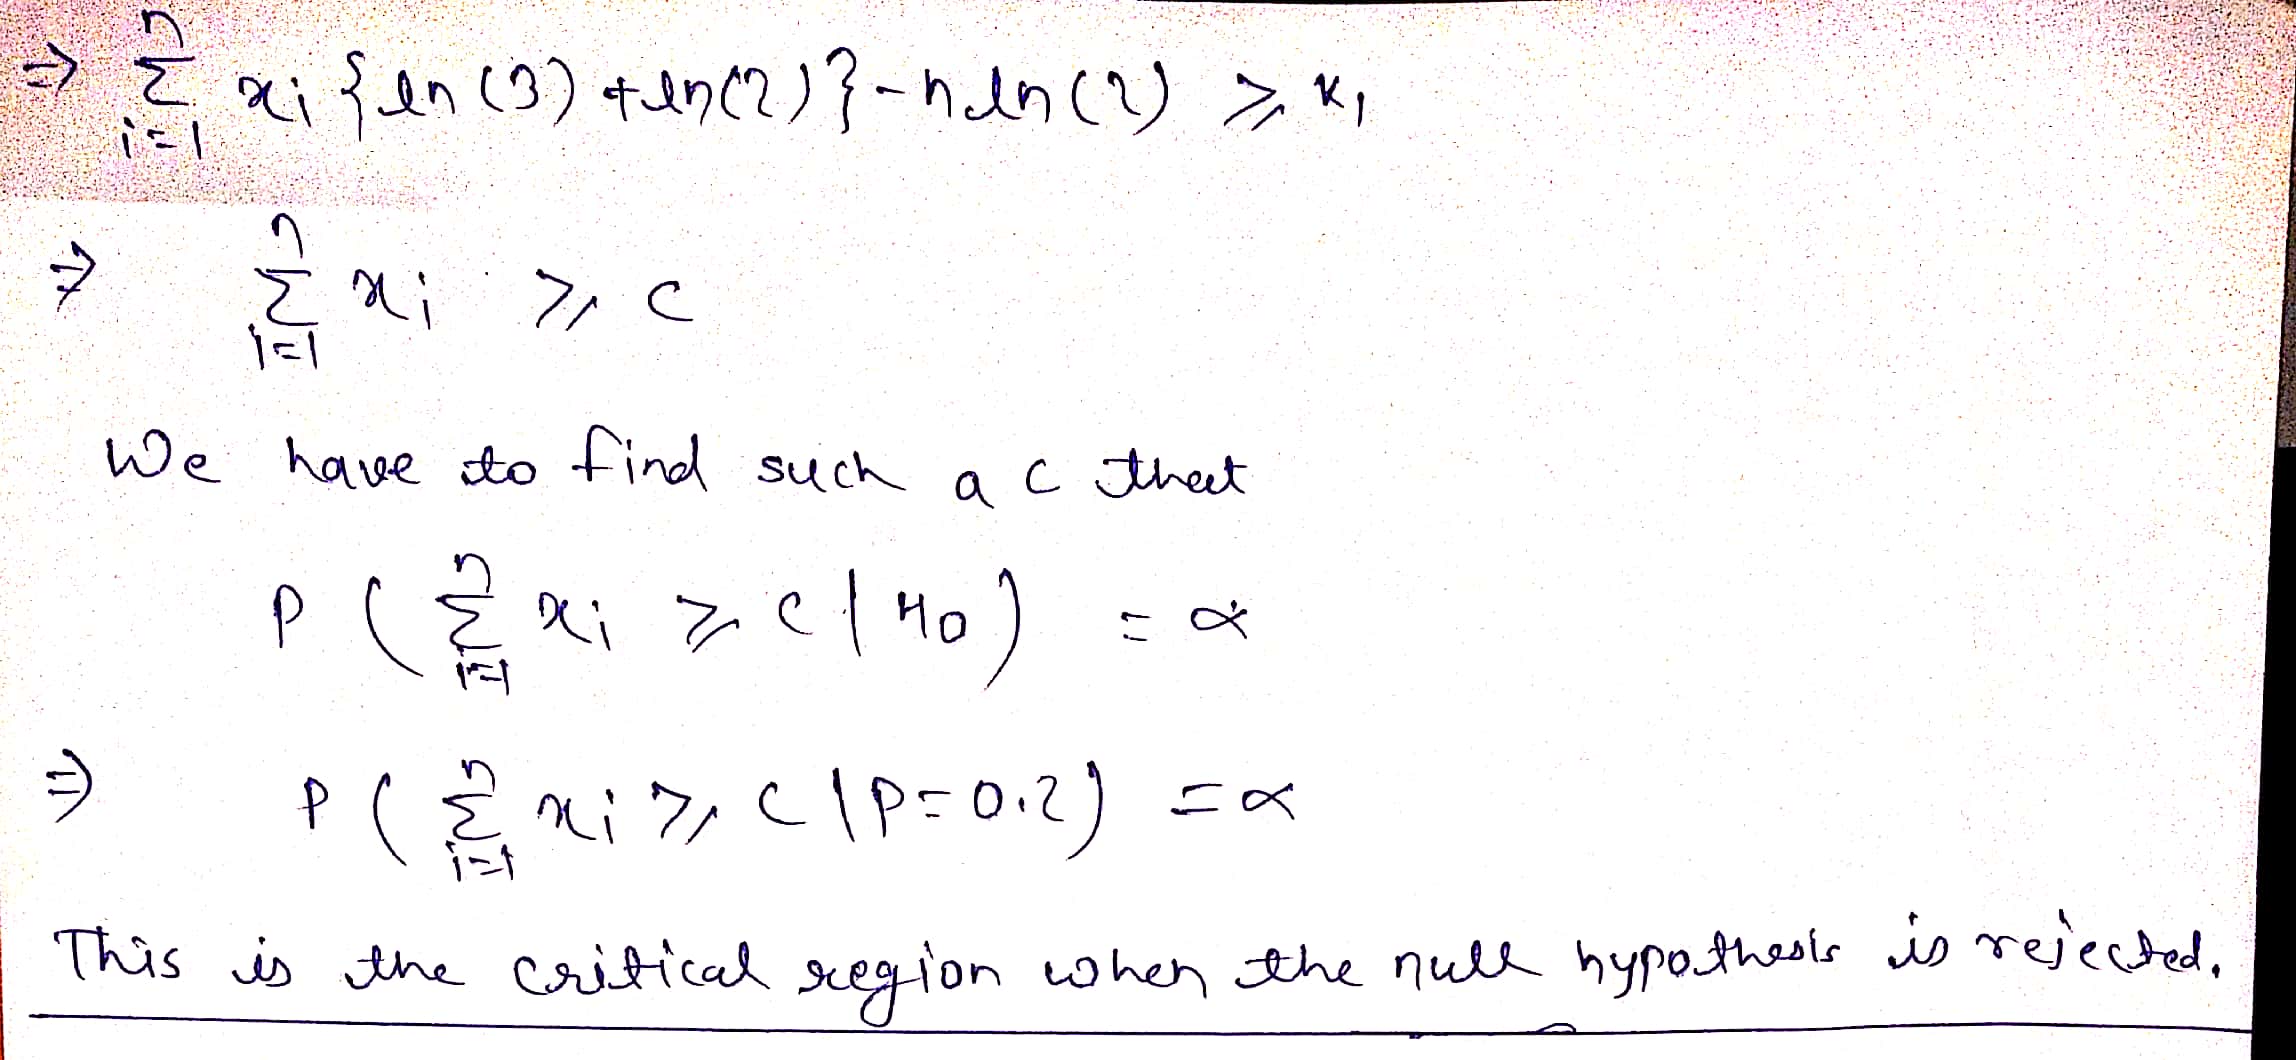 ⇒ n∑i=1 xi {ln(3) + ln(2)} - n ln(2) ⩾ K1
⇒ n∑i=1 xi ⩾ c
We have to find such a c that
P ( n∑i=1 xi ⩾ c | H0 ) = α
⇒ P ( n∑i=1 xi ⩾ c | P = 0.2 ) = α
This is the critical region when the null hypothesis is rejected.